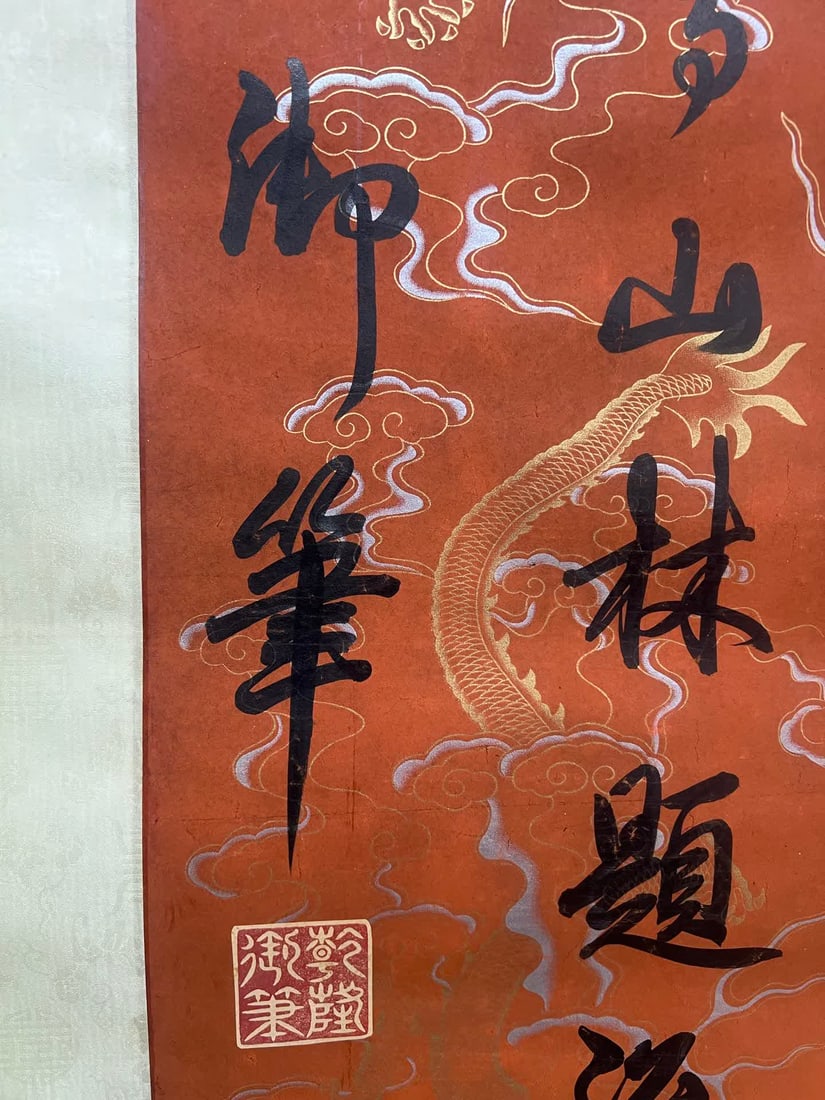 山林題
御筆
乾隆
御筆